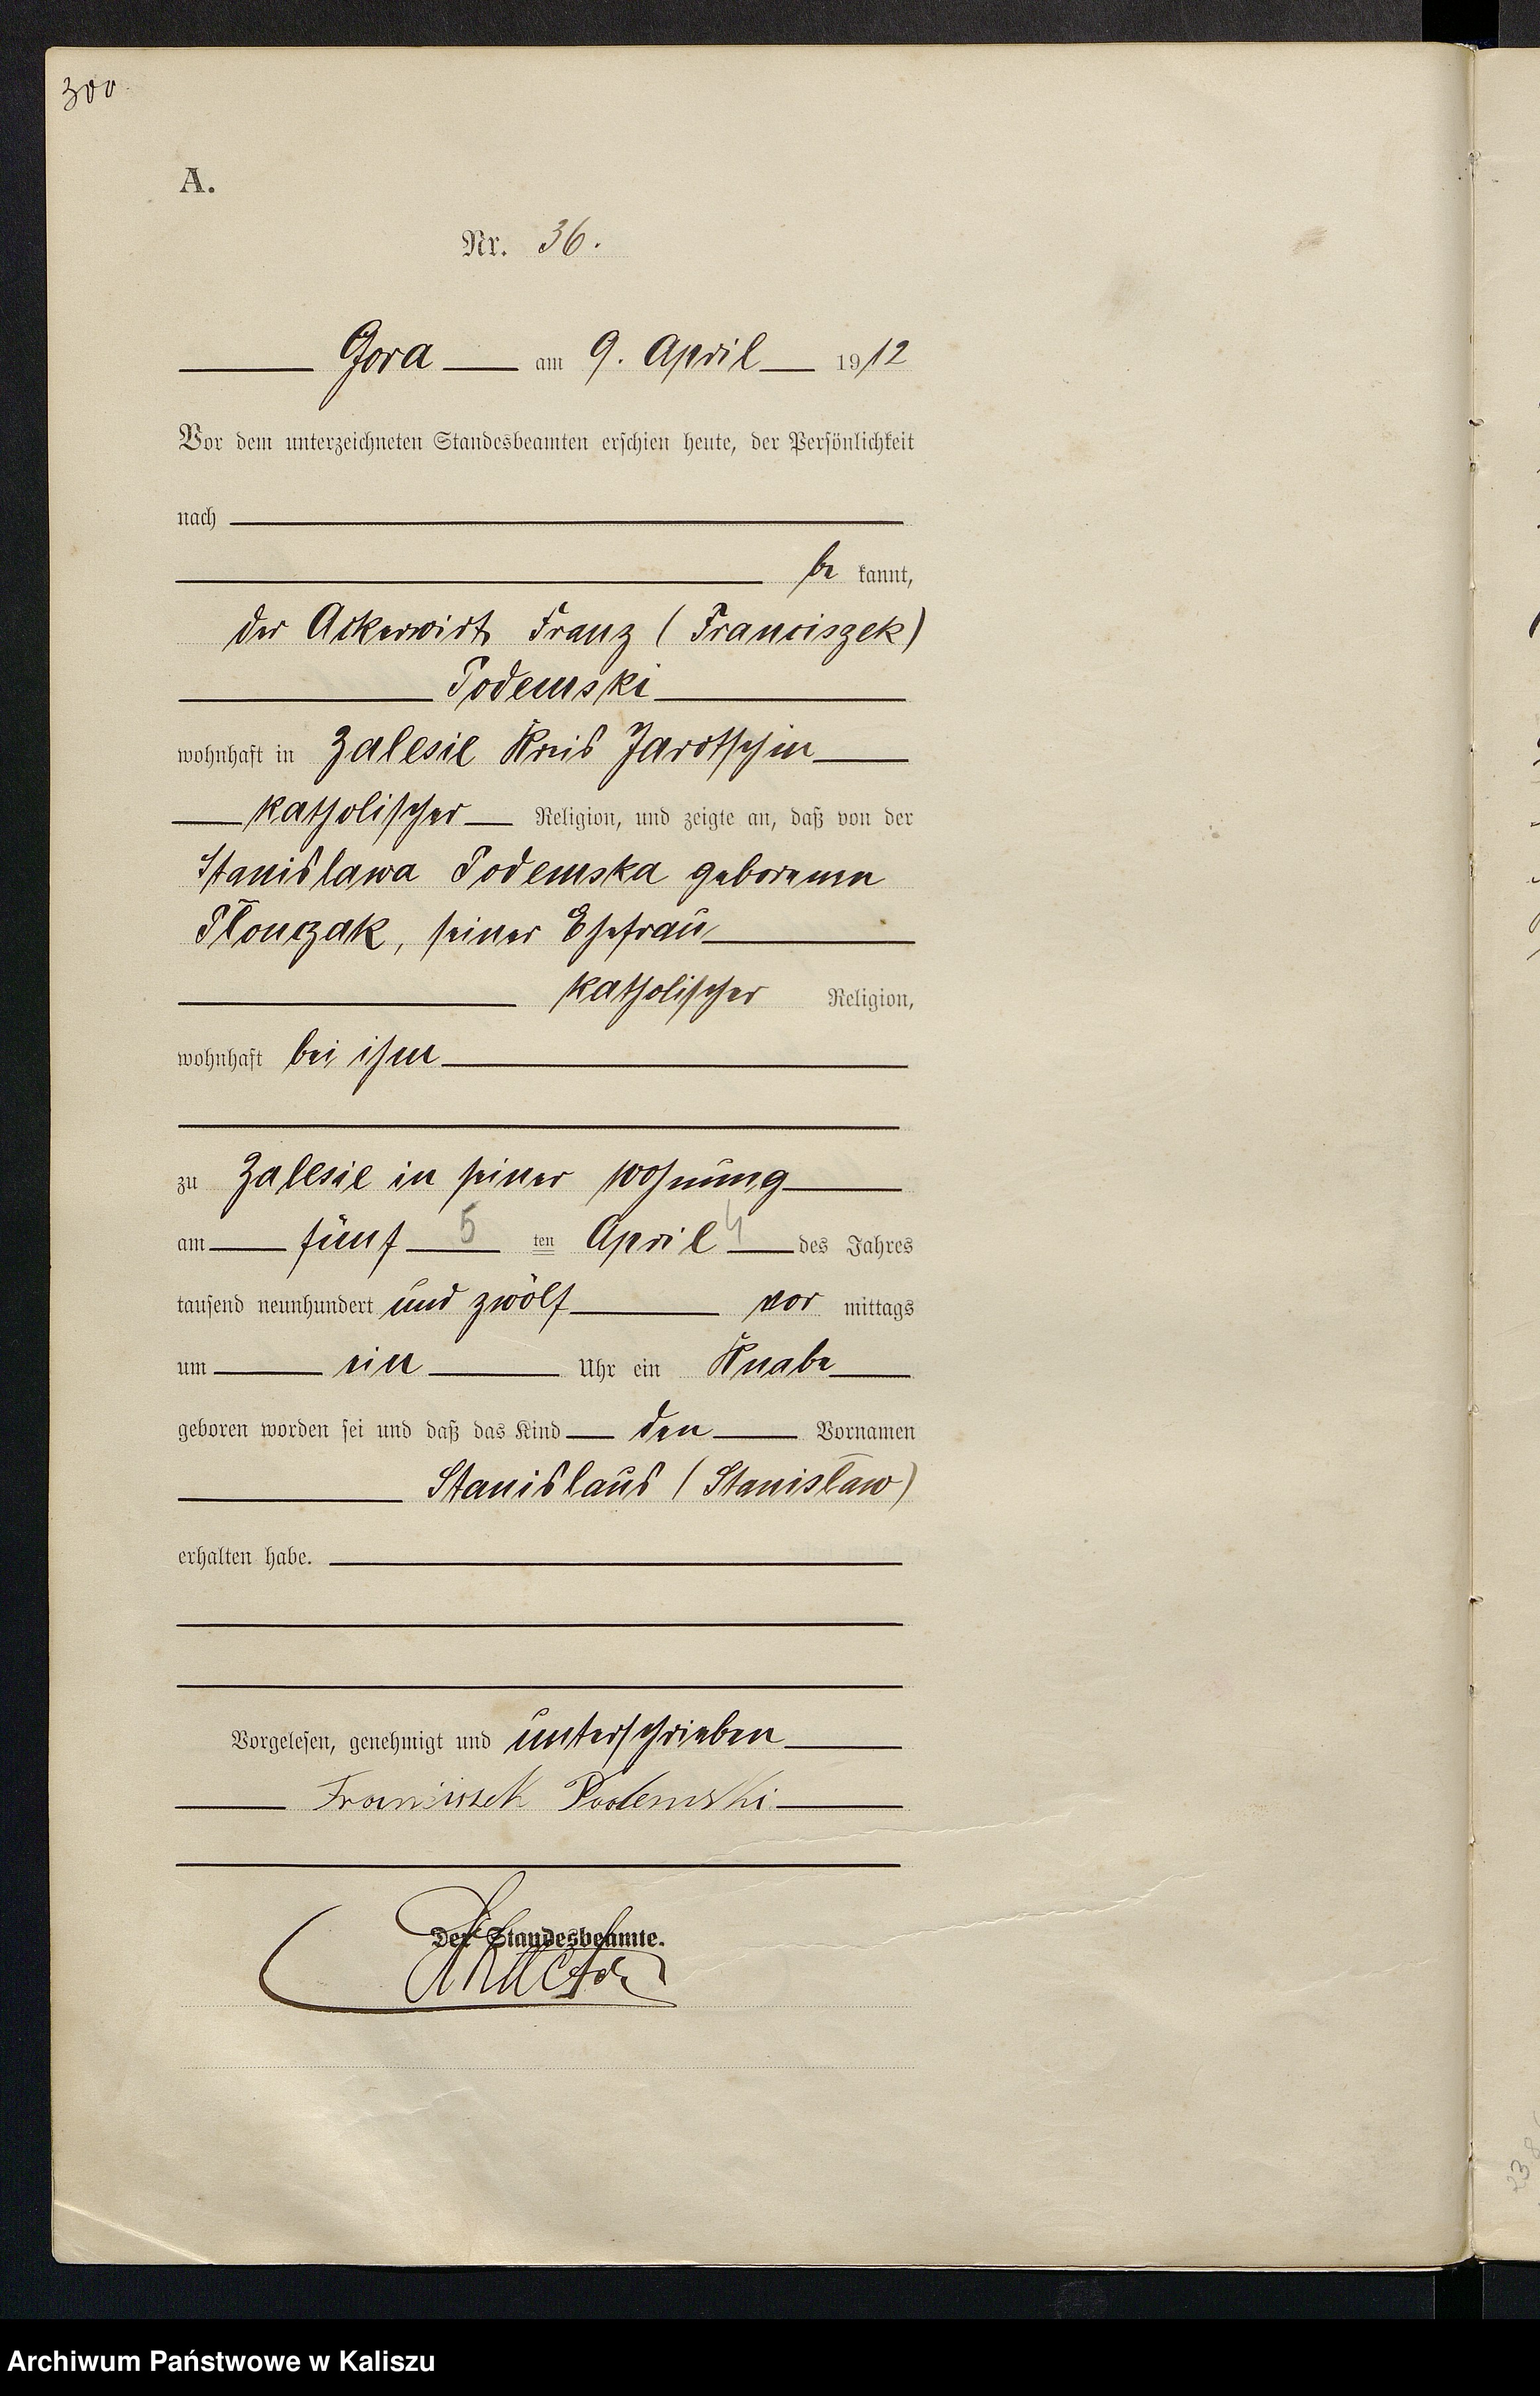 300
A.
Nr. 36.
Gora am 9. April 1912
Vor dem unterzeichneten Standesbeamten erschien heute, der Persönlichkeit
nach
be kannt,
der Ackerwirt Franz (Franciszek)
Podemski
wohnhaft in Zalesie Kreis Jarotschin
katholischer Religion, und zeigte an, daß von der
Stanislawa Podemska geborenen
Płonczak, seiner Ehefrau
katholischer Religion,
wohnhaft bei ihm
zu Zalesie in seiner Wohnung
am fünf 5 ten April 4 des Jahres
tausend neunhundert und zwölf vor mittags
um ein Uhr ein Knabe
geboren worden sei und daß das Kind den Vornamen
Stanislaus (Stanisław)
erhalten habe.
Vorgelesen, genehmigt und unterschrieben
Franciszek Podemski
Der Standesbeamte.
238
Archiwum Państwowe w Kaliszu